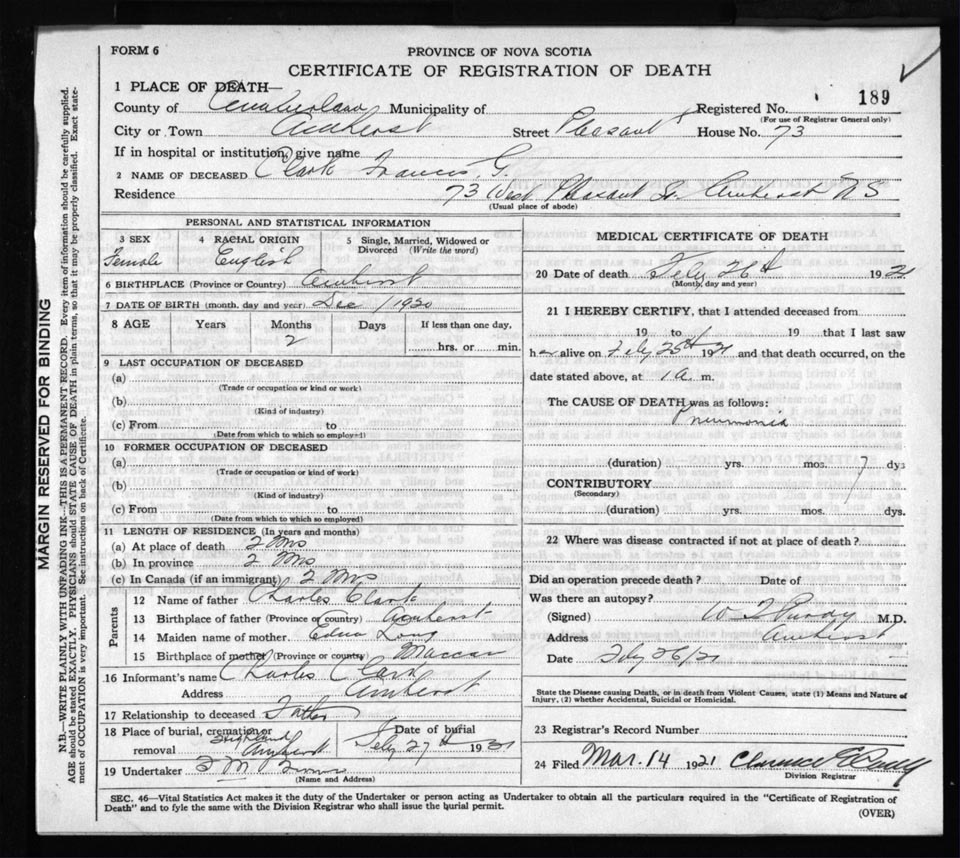 FORM 6
PROVINCE OF NOVA SCOTIA
CERTIFICATE OF REGISTRATION OF DEATH
1 PLACE OF DEATH—
County of Cumberland Municipality of Registered No. 189
(For use of Registrar General only)
City or Town Amherst Street Pleasant House No. 73
If in hospital or institution, give name
2 NAME OF DECEASED Clark Francis, G.
Residence 73 West Pleasant St. Amherst N S
(Usual place of abode)
PERSONAL AND STATISTICAL INFORMATION
3 SEX 4 RACIAL ORIGIN 5 Single, Married, Widowed or Divorced (Write the word)
Female English
6 BIRTHPLACE (Province or Country) Amherst
7 DATE OF BIRTH (month, day and year) Dec / 1920
8 AGE Years Months Days If less than one day,
2 hrs. or min.
9 LAST OCCUPATION OF DECEASED
(a)
(Trade or occupation or kind or work)
(b)
(Kind of industry)
(c) From to
(Date from which to which so employed)
10 FORMER OCCUPATION OF DECEASED
(a)
(Trade or occupation or kind of work)
(b)
(Kind of industry)
(c) From to
(Date from which to which so employed)
11 LENGTH OF RESIDENCE (In years and months)
(a) At place of death 2 Mos
(b) In province 2 Mos
(c) In Canada (if an immigrant) 2 Mos
Parents
12 Name of father Charles Clark
13 Birthplace of father (Province or country) Amherst
14 Maiden name of mother Edna Long
15 Birthplace of mother (Province or country) Maccan
16 Informant's name Charles Clark
Address Amherst
17 Relationship to deceased Father
18 Place of burial, cremation or removal Highland Amherst Date of burial Feby 27th 1921
19 Undertaker
(Name and Address)
MEDICAL CERTIFICATE OF DEATH
20 Date of death Feby 26th 1921
(Month, day and year)
21 I HEREBY CERTIFY, that I attended deceased from
19 to 19 that I last saw
her alive on Feby 25th 1921 and that death occurred, on the
date stated above, at 1 a. m.
The CAUSE OF DEATH was as follows:
Pneumonia
(duration) yrs. mos. 7 dys
CONTRIBUTORY
(Secondary)
(duration) yrs. mos. dys.
22 Where was disease contracted if not at place of death?
Did an operation precede death? Date of
Was there an autopsy?
(Signed) M.D.
Address Amherst
Date Feby 26/21
State the Disease causing Death, or in death from Violent Causes, state (1) Means and Nature of
Injury, (2) whether Accidental, Suicidal or Homicidal.
23 Registrar's Record Number
24 Filed Mar. 14 1921 Clarence
Division Registrar
SEC. 46—Vital Statistics Act makes it the duty of the Undertaker or person acting as Undertaker to obtain all the particulars required in the "Certificate of Registration of
Death" and to file the same with the Division Registrar who shall issue the burial permit.
(OVER)
MARGIN RESERVED FOR BINDING
N.B.—WRITE PLAINLY WITH UNFADING INK—THIS IS A PERMANENT RECORD. Every item of information should be carefully supplied.
AGE should be stated EXACTLY. PHYSICIANS should STATE CAUSE OF DEATH in plain terms, so that it may be properly classified. Exact state-
ment of OCCUPATION is very important. See instructions on back of Certificate.